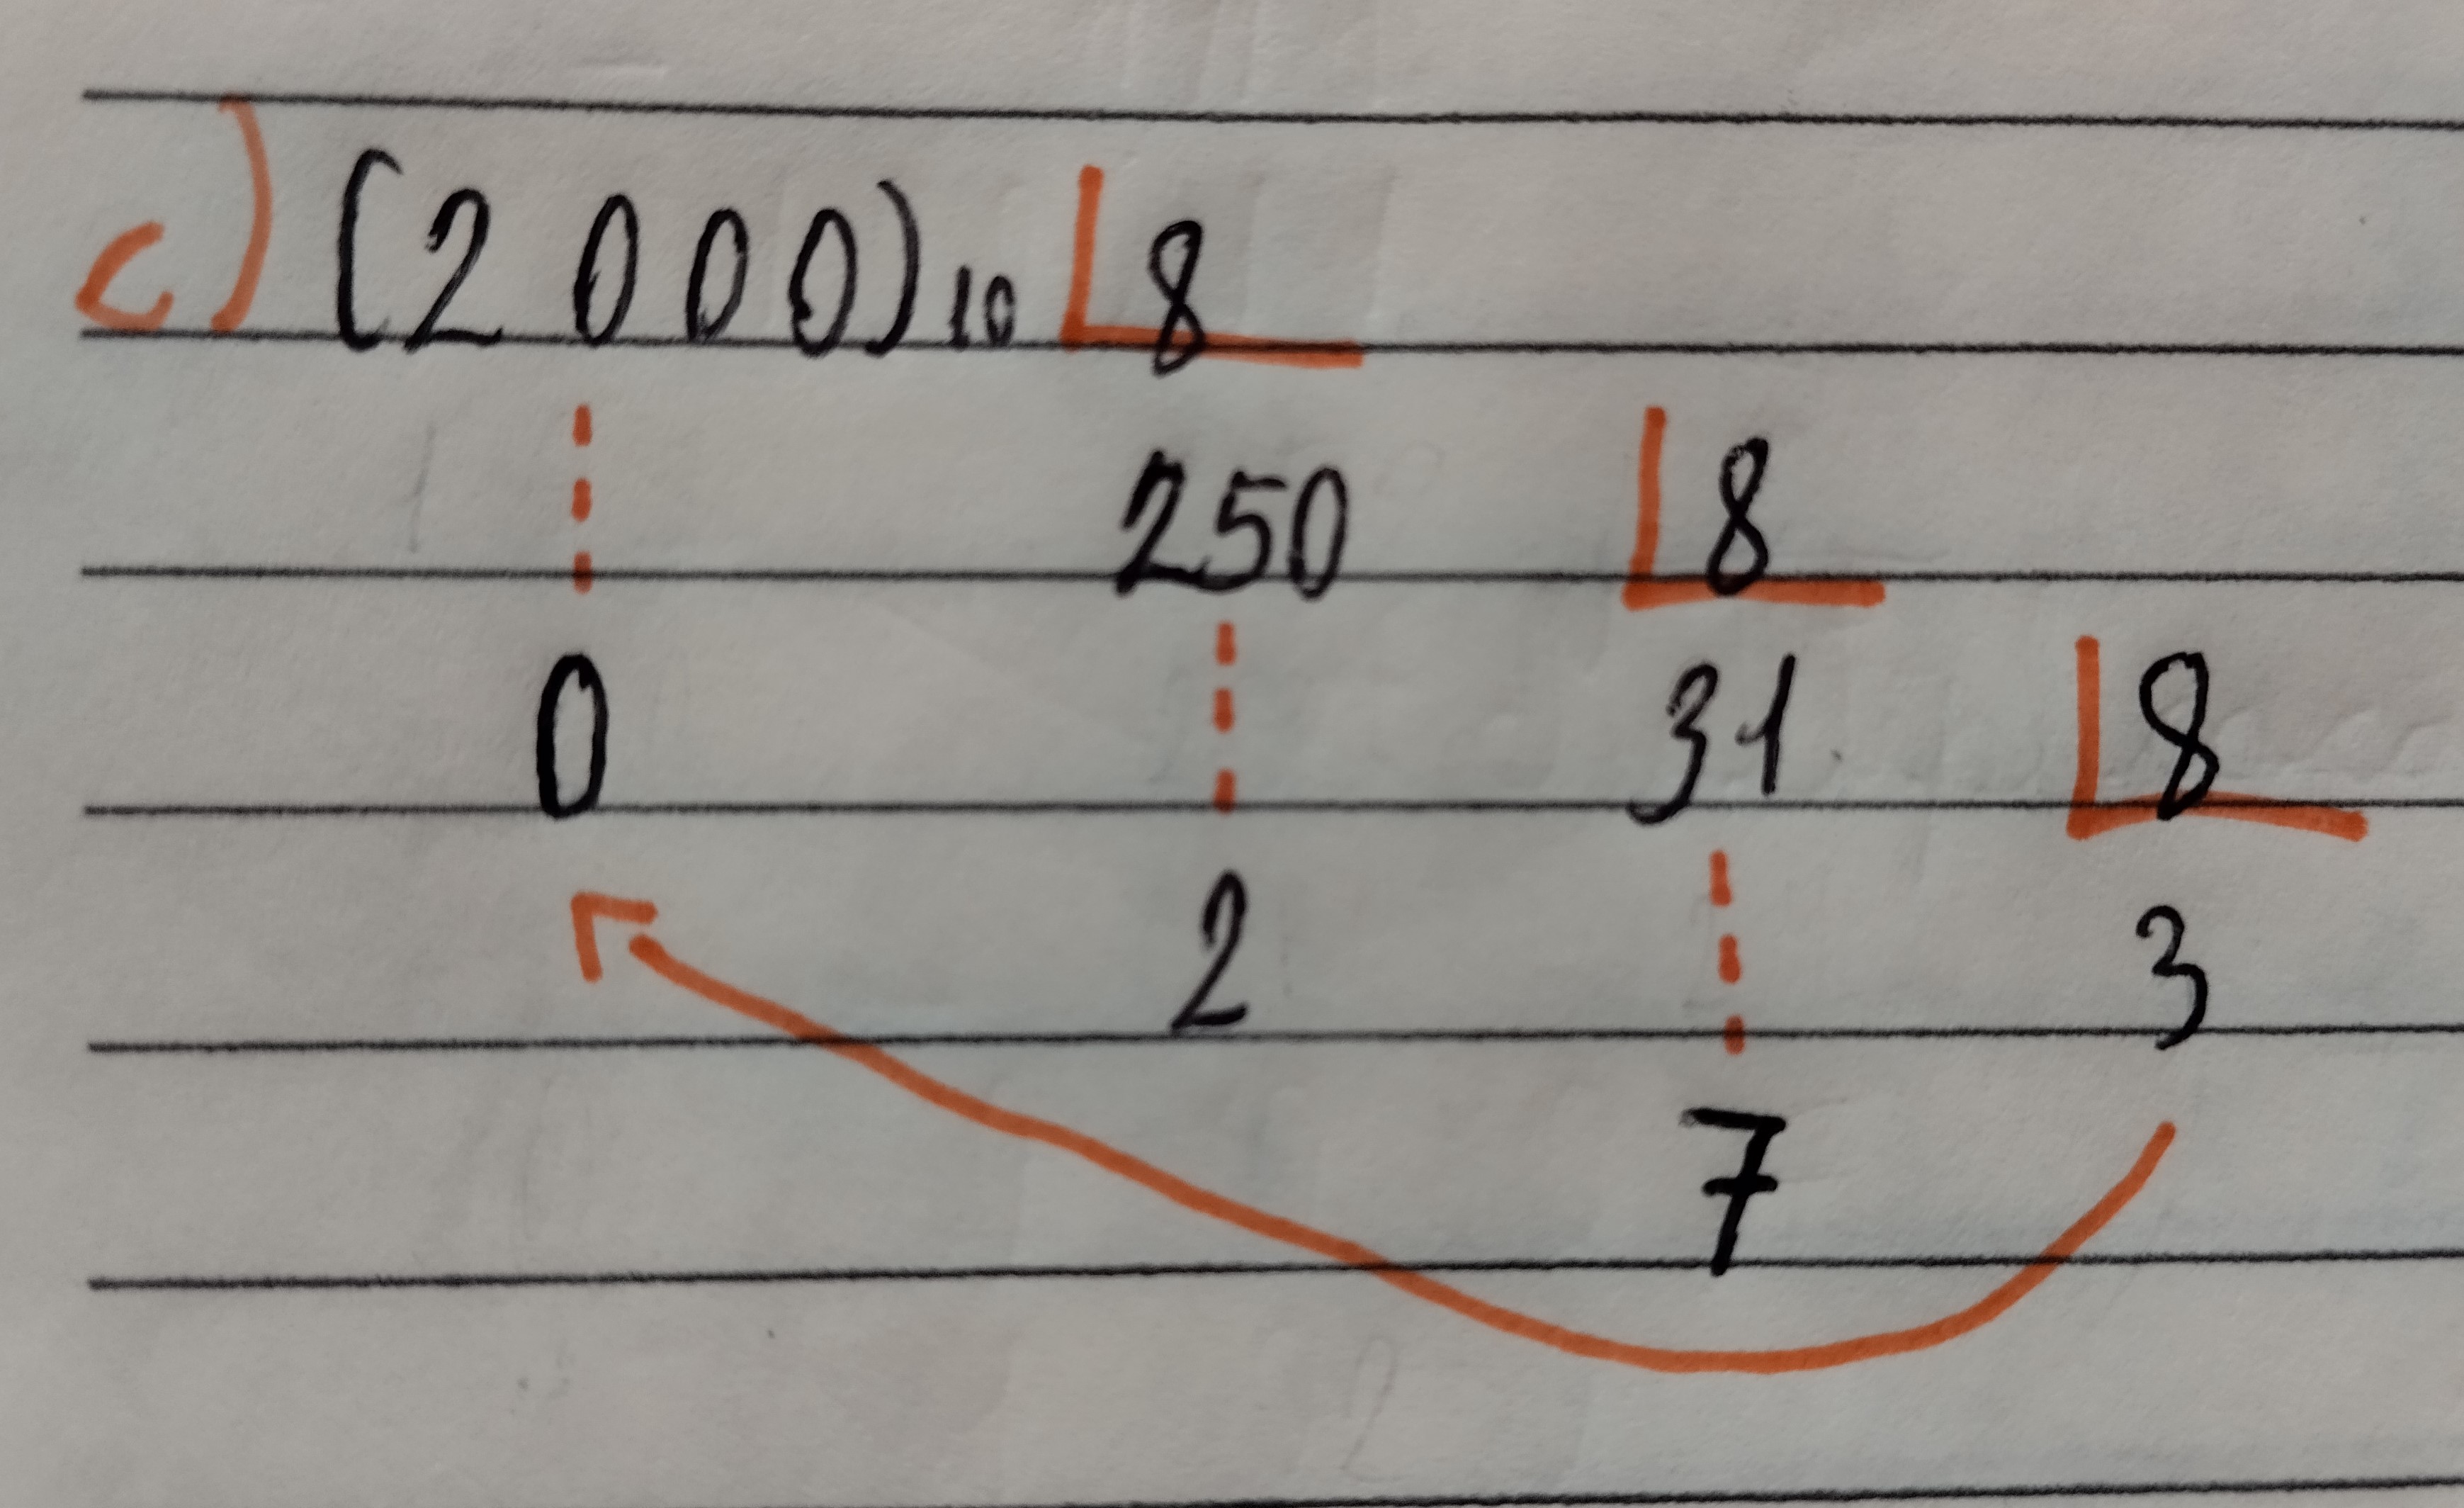 c) (2000)10 8
250 8
0 31 8
2 3
7